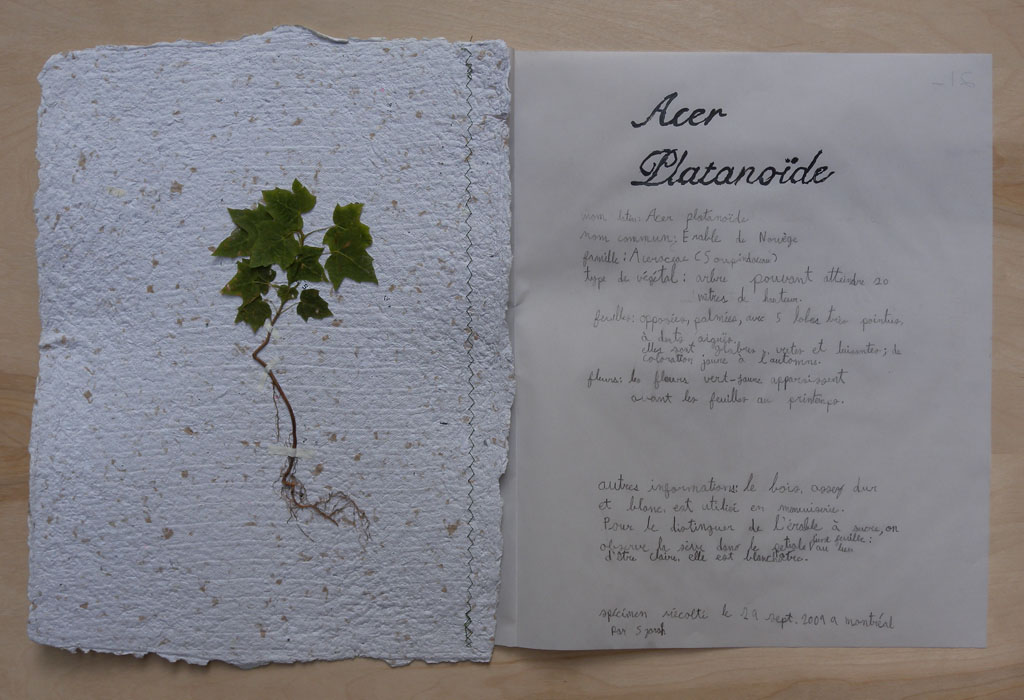 Acer
Platanoïde
nom latin: Acer platanoïde
nom commun: Erable de Norvège
famille: Aceraceae
type de végétal: arbre pouvant atteindre 20
mètres de hauteur.
feuilles: opposées, palmées, avec 5 lobes très pointies,
à dents aiguës.
elles sont glabres, vertes et luisantes; de
coloration jaune à l'automne.
fleurs: les fleurs vert-jaune apparaissent
avant les feuilles au printemps.
autres informations: le bois, assez dur
et blanc, est utilisé en menuiserie.
Pour le distinguer de l'érable à sucre, on
observe la sève dans le d'une feuille:
au lieu
d'être claire, elle est blanchâtre.
spécimen récolté le 29 sept. 2009 a montréal
Par